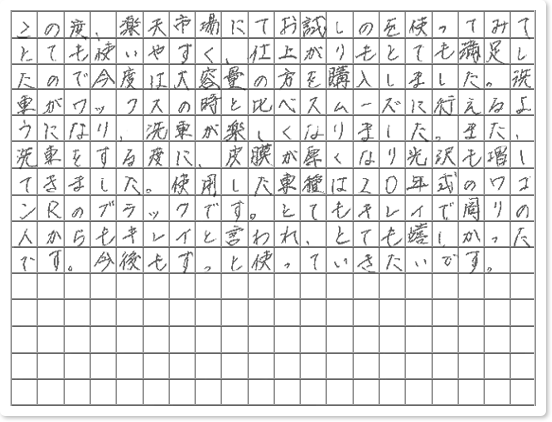 この度、楽天市場にてお試しのを使ってみて
とても使いやすく、仕上がりもとても満足し
たので今度は大容量の方を購入しました。洗
車がワックスの時と比べスムーズに行えるよ
うになり、洗車が楽しくなりました。また、
洗車をする度に、皮膜が厚くなり光沢も増し
てきました。使用した車種は20年式のワゴ
ンRのブラックです。とてもキレイで周りの
人からもキレイと言われ、とても嬉しかった
です。今後もずっと使っていきたいです。